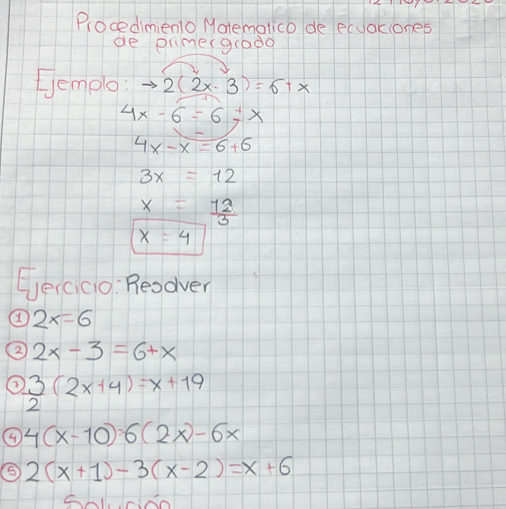 Procedimiento Matematico de ecuaciones
de primer grado
Ejemplo: → 2(2x-3)=6+x
4x-6=6+x
4x-x=6+6
3x = 12
x = 12/3
x = 4
Ejercicio: Resolver
① 2x=6
② 2x-3=6+x
③ 3/2(2x+4)=x+19
④ 4(x-10)=6(2x)-6x
⑤ 2(x+1)-3(x-2)=x+6
Solución